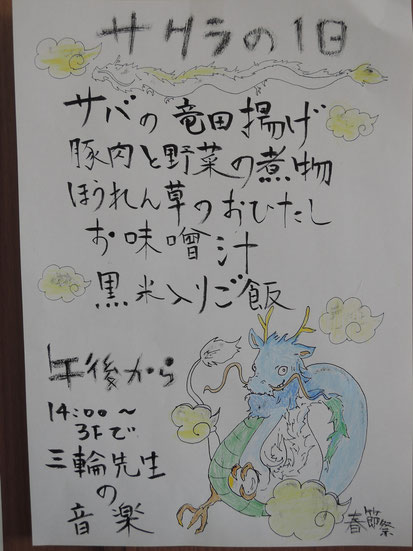 サクラの1日
サバの竜田揚げ
豚肉と野菜の煮物
ほうれん草のおひたし
お味噌汁
黒米入りご飯
午後から
14:00〜
3Fで
三輪先生
の
音楽
春節祭